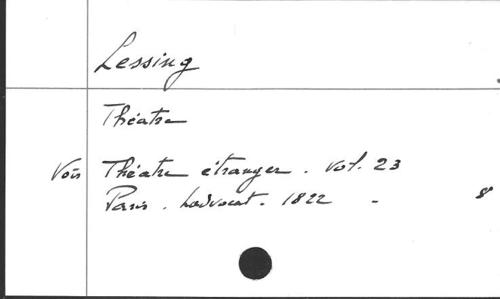 Lessing
Théatre
Voir Théatre étranger. vol. 23
Paris. Ladvocat. 1822 - 8°